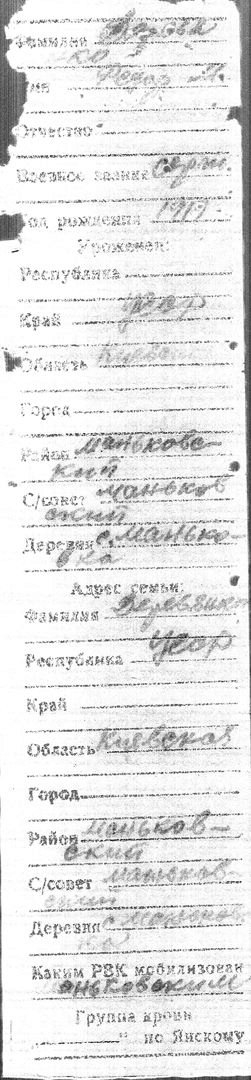 Фамилия
Имя
Отчество
Военное звание серж.
Год рождения
Уроженец:
Республика
Край УССР
Область Киевск
Город
Район Маньковс-
кий
С/совет Маньков
ский
Деревня с. Манько-
вка
Адрес семьи:
Фамилия
Республика УССР
Край
Область Киевская
Город
Район Маньков-
ский
С/совет Маньков-
ский
Деревня с Маньков
ка
Каким РВК мобилизован
аньковским
Группа крови
" по Янскому